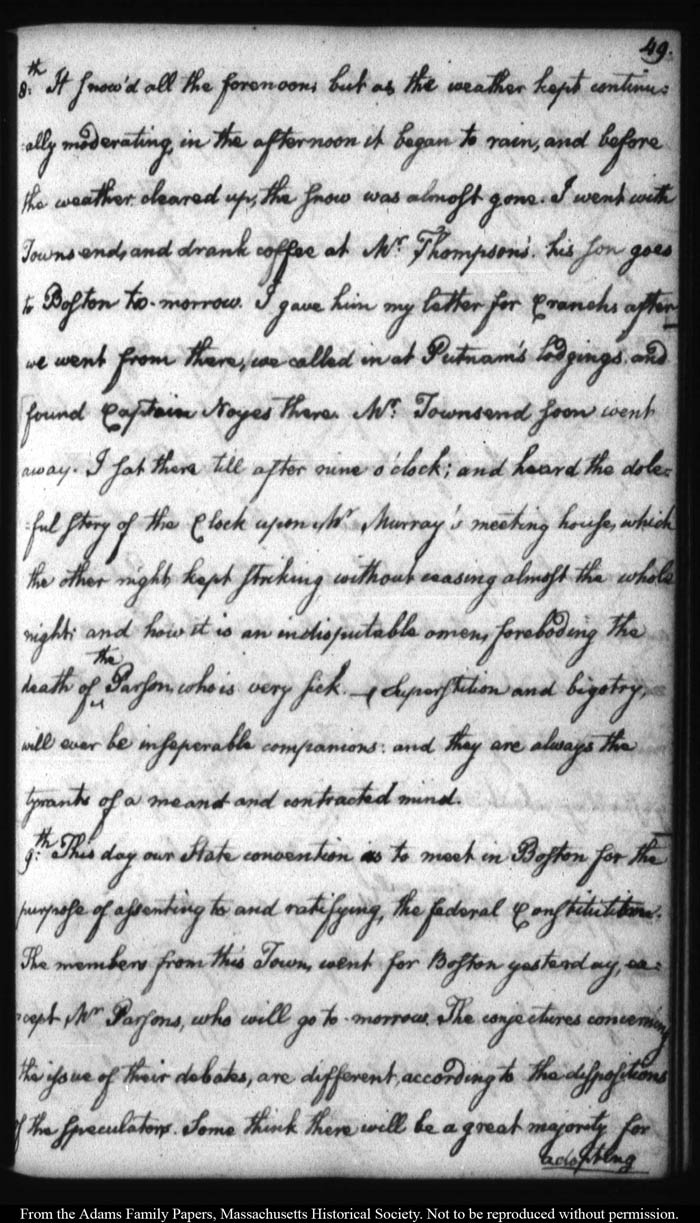 49.
8:th It snow'd all the forenoon, but as the weather kept continu=
:ally moderating, in the afternoon it began to rain, and before
the weather cleared up, the snow was almost gone. I went with
Townsend, and drank coffee at Mr. Thompson's. his son goes
to Boston to-morrow. I gave him my letter for Cranch: after
we went from there, we called in at Putnam's lodgings, and
found Captain Noyes there. Mr. Townsend soon went
away. I sat there till after nine o'clock; and heard the dole=
:ful story of the Clock upon Mr Murray's meeting house, which
the other night, kept striking without ceasing almost the whole
night: and how it is an indisputable omen, foreboding the
death of the Parson, who is very sick. — Superstition and bigotry,
will ever be inseperable companions: and they are always the
tyrants of a mean and contracted mind.
9:th This day our State convention is to meet in Boston for the
purpose of assenting to and ratifying, the federal Constitution.
The members from this Town, went for Boston yesterday, ex=
:cept Mr Parsons, who will go to-morrow. The conjectures concerning
the issue of their debates, are different, according to the dispositions
of the speculators. Some think there will be a great majority for
adopting
From the Adams Family Papers, Massachusetts Historical Society. Not to be reproduced without permission.